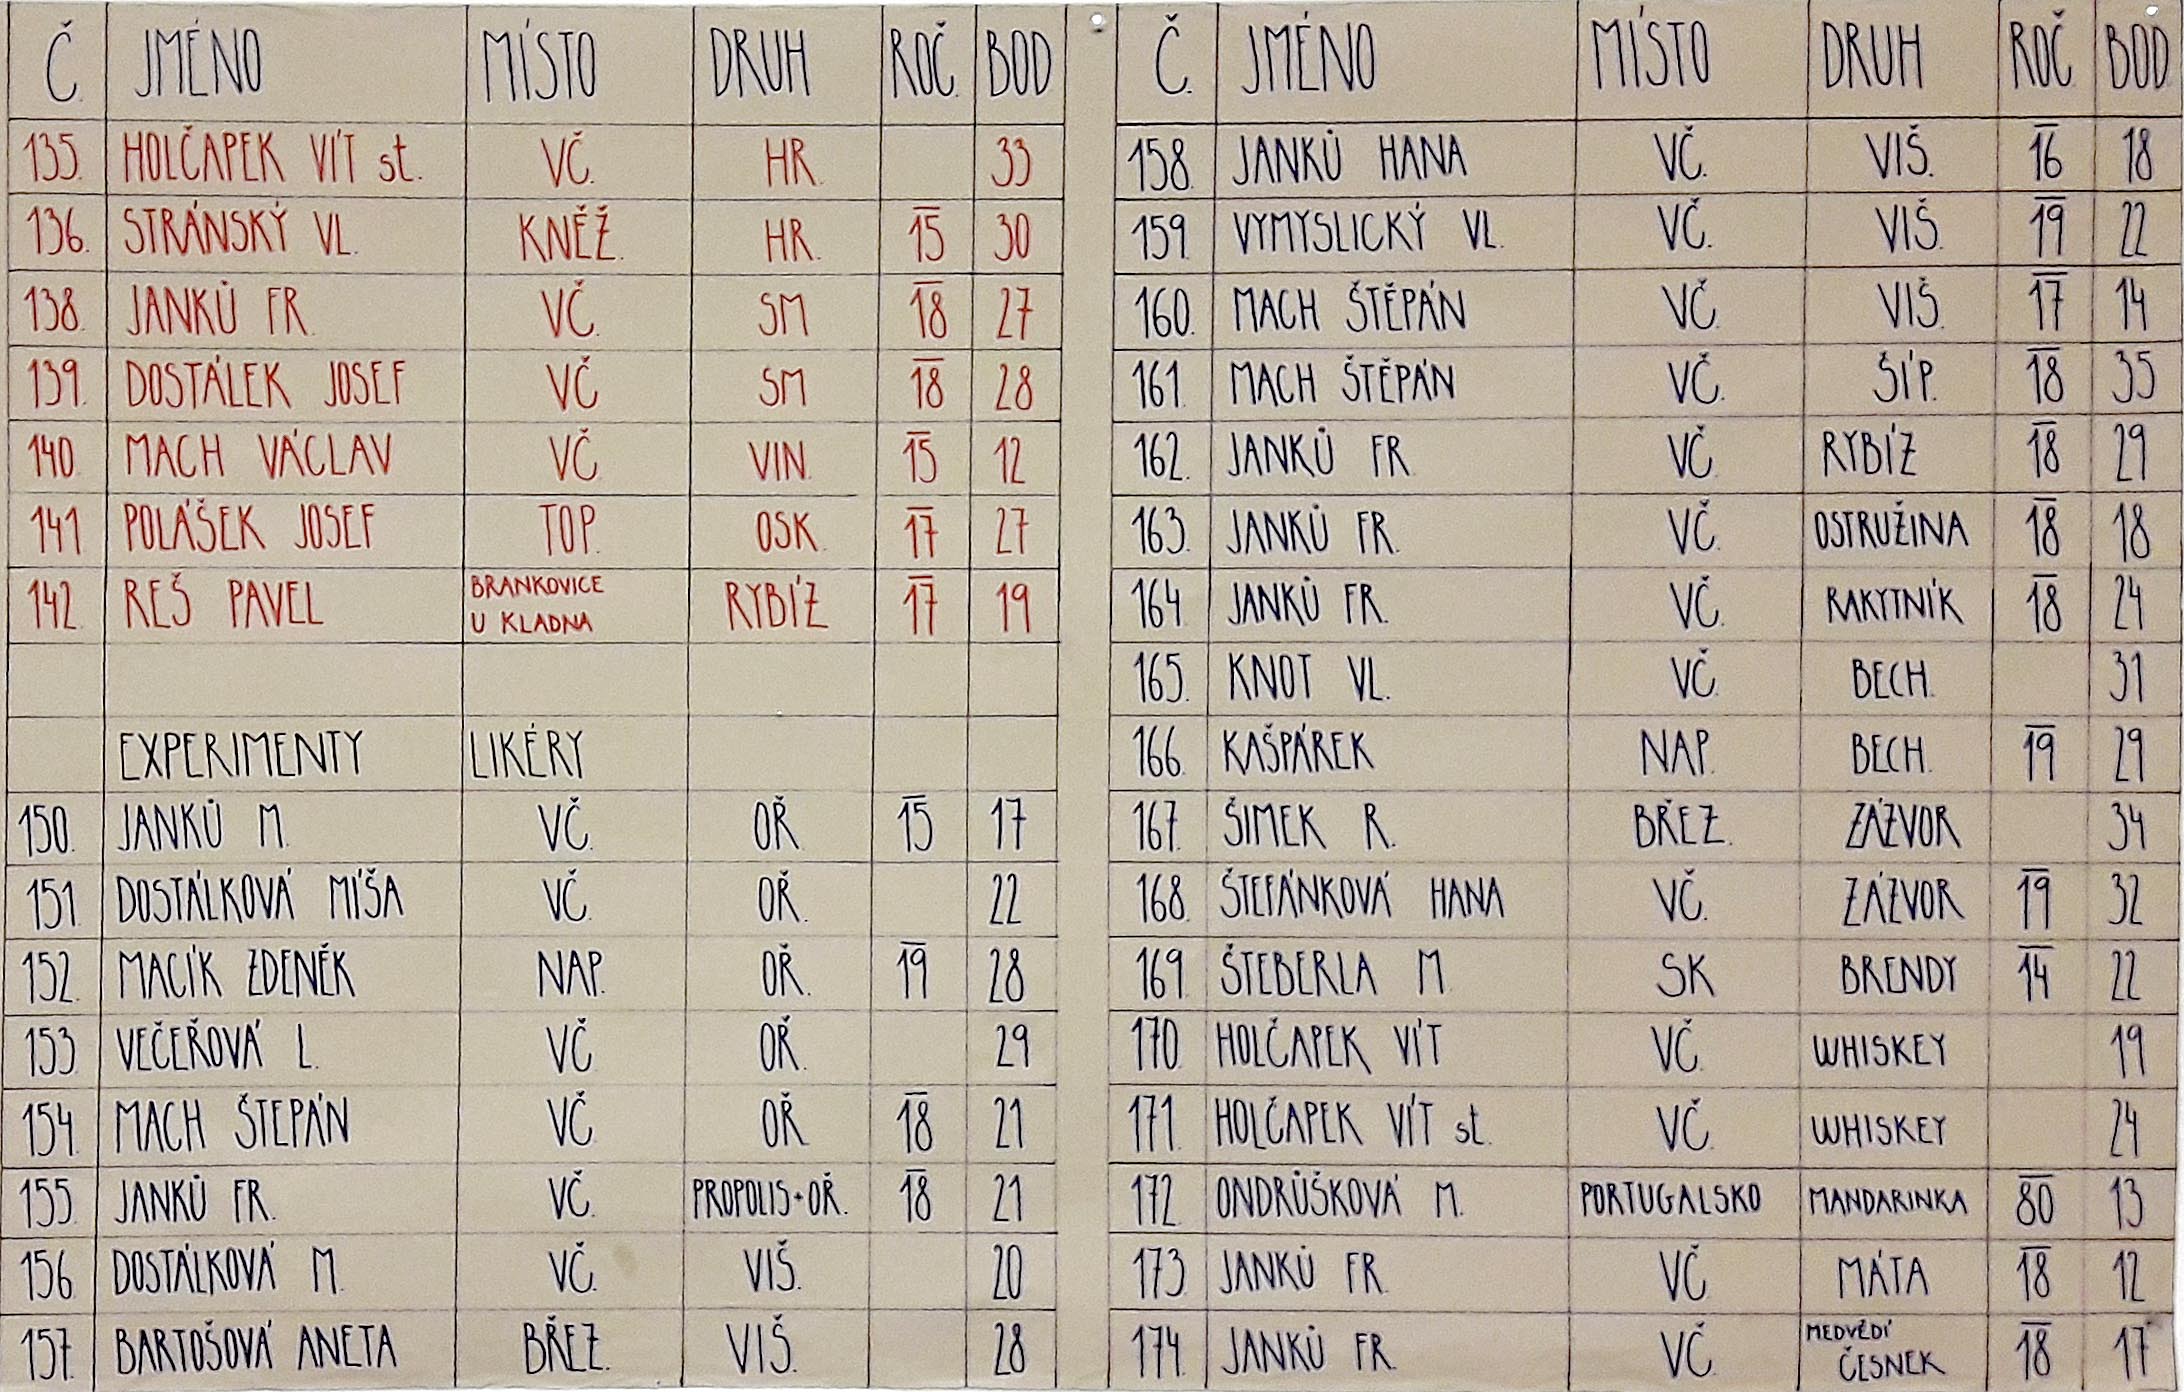 Č. JMÉNO MÍSTO DRUH ROČ. BOD
135. HOLČAPEK VÍT st. VČ. HR. 33
136. STRÁNSKÝ VL. KNĚŽ. HR. 15 30
138. JANKŮ FR. VČ. SM 18 27
139. DOSTÁLEK JOSEF VČ SM 18 28
140. MACH VÁCLAV VČ VIN. 15 12
141. POLÁŠEK JOSEF TOP. OSK. 17 27
142. REŠ PAVEL BRANKOVICE U KLADNA RYBÍZ 17 19
EXPERIMENTY LIKÉRY
150. JANKŮ M. VČ. OŘ. 15 17
151. DOSTÁLKOVÁ MÍŠA VČ. OŘ. 22
152. MACÍK ZDENĚK NAP. OŘ. 19 28
153 VEČEŘOVÁ L. VČ OŘ. 29
154. MACH ŠTEPÁN VČ OŘ 18 21
155. JANKŮ FR. VČ. PROPOLIS+OŘ. 18 21
156 DOSTÁLKOVÁ M. VČ. VIŠ. 20
157. BARTOŠOVÁ ANETA BŘEZ. VIŠ. 28
Č. JMÉNO MÍSTO DRUH ROČ. BOD
158. JANKŮ HANA VČ. VIŠ. 16 18
159. VYMYSLICKÝ VL. VČ. VIŠ. 19 22
160. MACH ŠTĚPÁN VČ. VIŠ. 17 14
161. MACH ŠTĚPÁN VČ. ŠÍP. 18 35
162. JANKŮ FR. VČ. RYBÍZ 18 29
163. JANKŮ FR. VČ. OSTRUŽINA 18 18
164 JANKŮ FR. VČ. RAKYTNÍK 18 24
165. KNOT VL. VČ. BECH. 31
166. KAŠPÁREK NAP. BECH. 19 29
167. ŠIMEK R. BŘEZ. ZÁZVOR 34
168. ŠTEFÁNKOVÁ HANA VČ. ZÁZVOR 19 32
169. ŠTEBERLA M. SK BRENDY 14 22
170. HOLČAPEK VÍT VČ. WHISKEY 19
171. HOLČAPEK VÍT st. VČ. WHISKEY 24
172. ONDRŮŠKOVÁ M. PORTUGALSKO MANDARINKA 80 13
173 JANKŮ FR. VČ MÁTA 18 12
174. JANKŮ FR. VČ MEDVĚDÍ ČESNEK 18 17